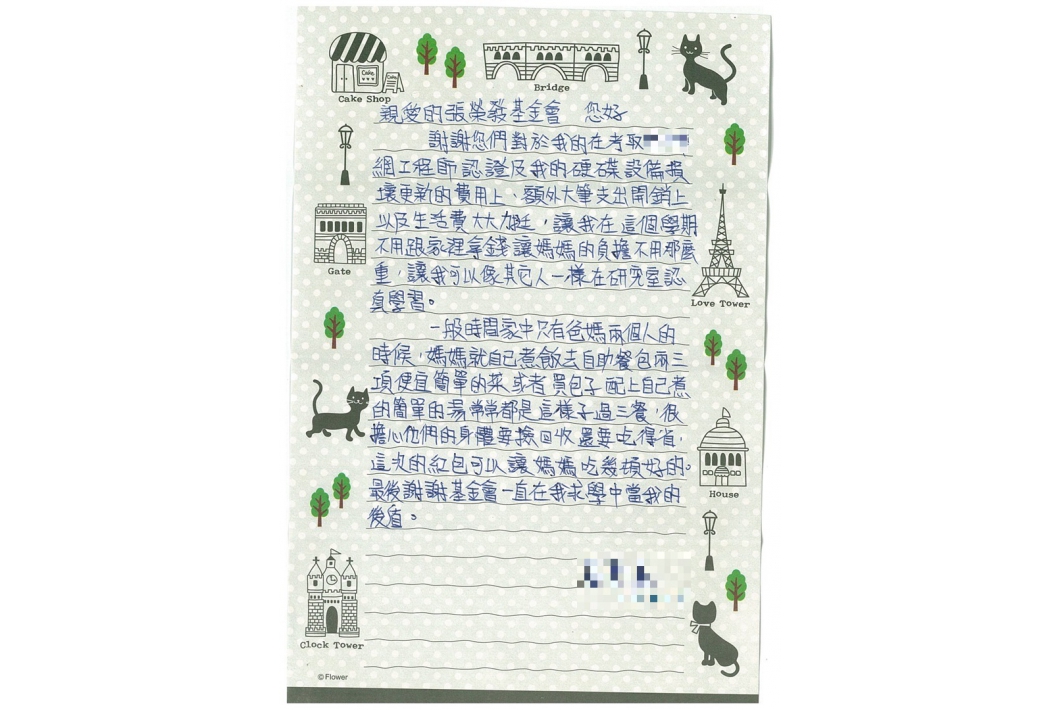 Cake Shop
Bridge
親愛的張榮發基金會 您好
謝謝您們對於我的在考取
網工程師認證及我的硬碟設備損
壞更新的費用上、額外大筆支出開銷上
以及生活費大大力挺，讓我在這個學期
不用跟家裡拿錢讓媽媽的負擔不用那麼
重，讓我可以像其它人一樣在研究室認
真學習。
Gate
Love Tower
一般時間家中只有爸媽兩個人的
時候，媽媽就自己煮飯去自助餐包兩三
項便宜簡單的菜或者買包子配上自己煮
的簡單的湯常常都是這樣子過三餐，很
擔心他們的身體要撿回收還要吃得省，
這次的紅包可以讓媽媽吃幾頓好的。
最後謝謝基金會一直在我求學中當我的
後盾。
House
Clock Tower
©Flower